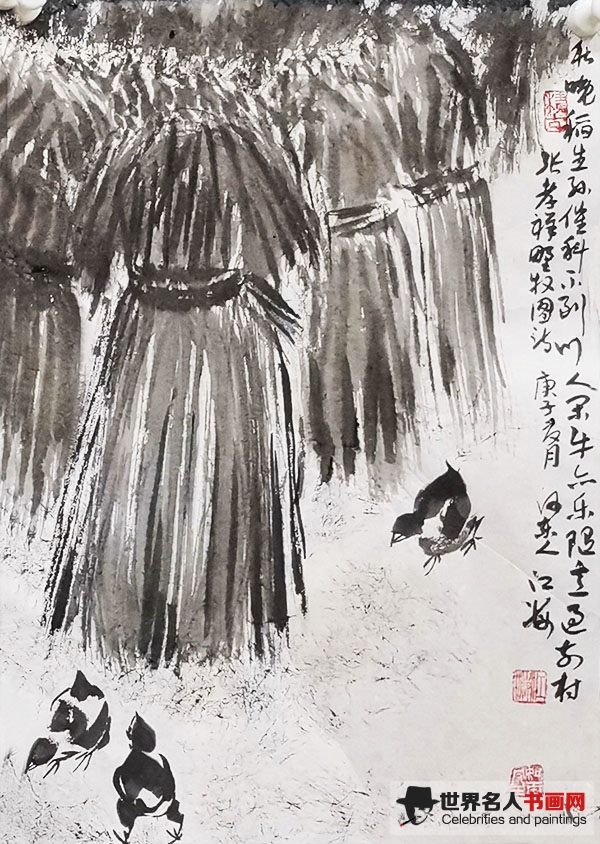 秋晚稻生孙催科不到门人闲牛亦乐随意过前村
张孝祥野牧图诗 庚子夏月 江海
世界名人书画网
Celebrities and paintings